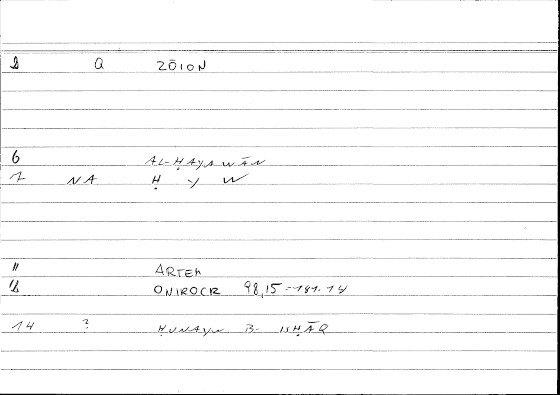 Q ZŌION
6 AL-ḤAYAWĀN
7 NA Ḥ Y W
11 ARTEM
ONIROCR 98,15 = 181.14
14 ? ḤUNAYN B- ISḤĀQ